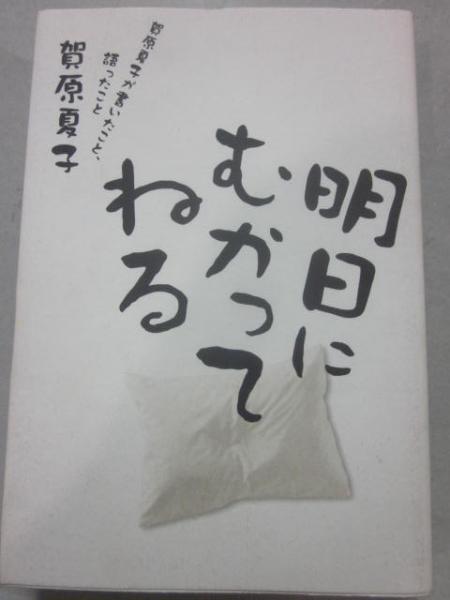 明日に
むかって
ねる
賀原夏子が書いたこと、
語ったこと
賀原夏子